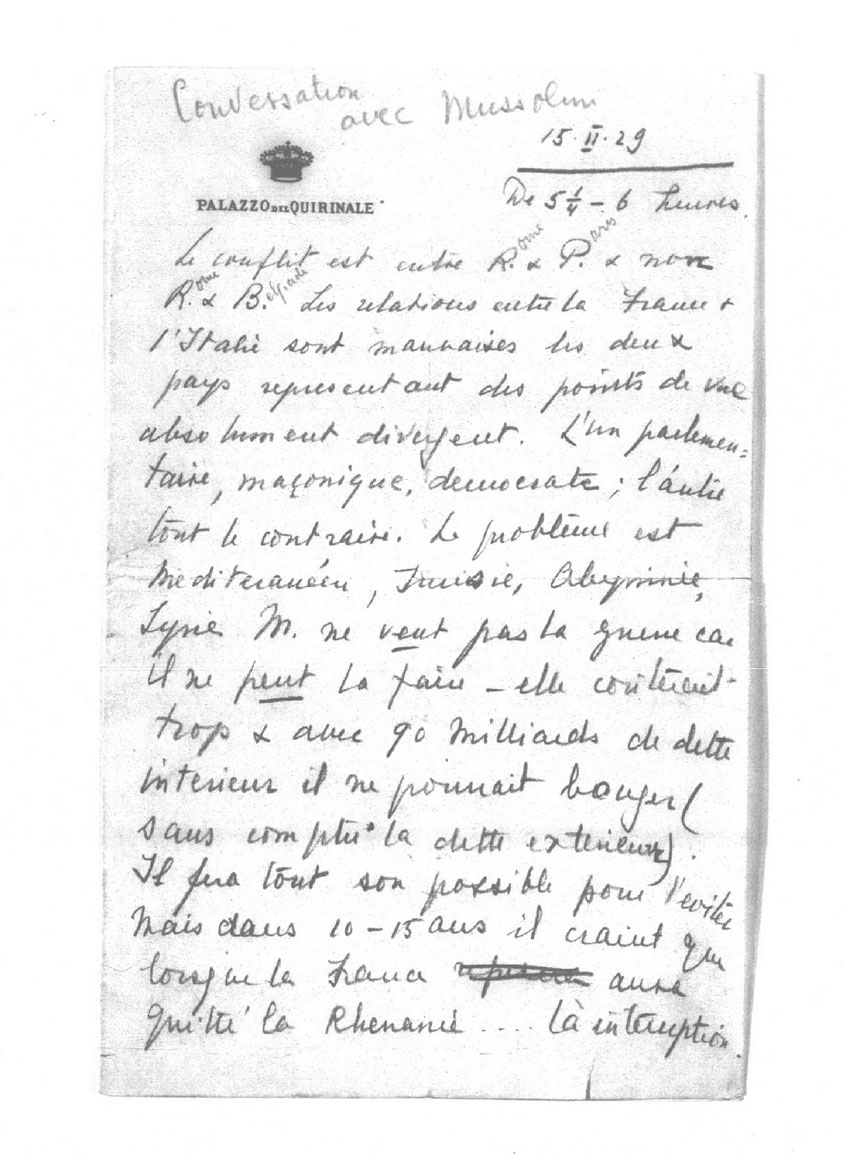 Conversation
avec Mussolini
15·II·29
PALAZZO DEL QUIRINALE
De 5¼ – 6 heures.
Le conflit est entre R.ome & P.aris & non
R.ome & B.elgrade Les relations entre la France &
l'Italie sont mauvaises les deux
pays representant des points de vue
absolument divergent. L'un parlemen=
taire, maçonique, democrate ; l'autre
tout le contraire. Le problème est
Mediteranéen, Tunisie, Abyssinie,
Syrie M. ne veut pas la guerre car
il ne peut la faire – elle couterait
trop & avec 90 milliards de dette
interieur il ne pourrait bouger (
sans compter la dette exterieure).
Il fera tout son possible pour l'eviter
Mais dans 10 – 15 ans il craint que
lorsque la France aura
quitté la Rhenanie .... là interuption.